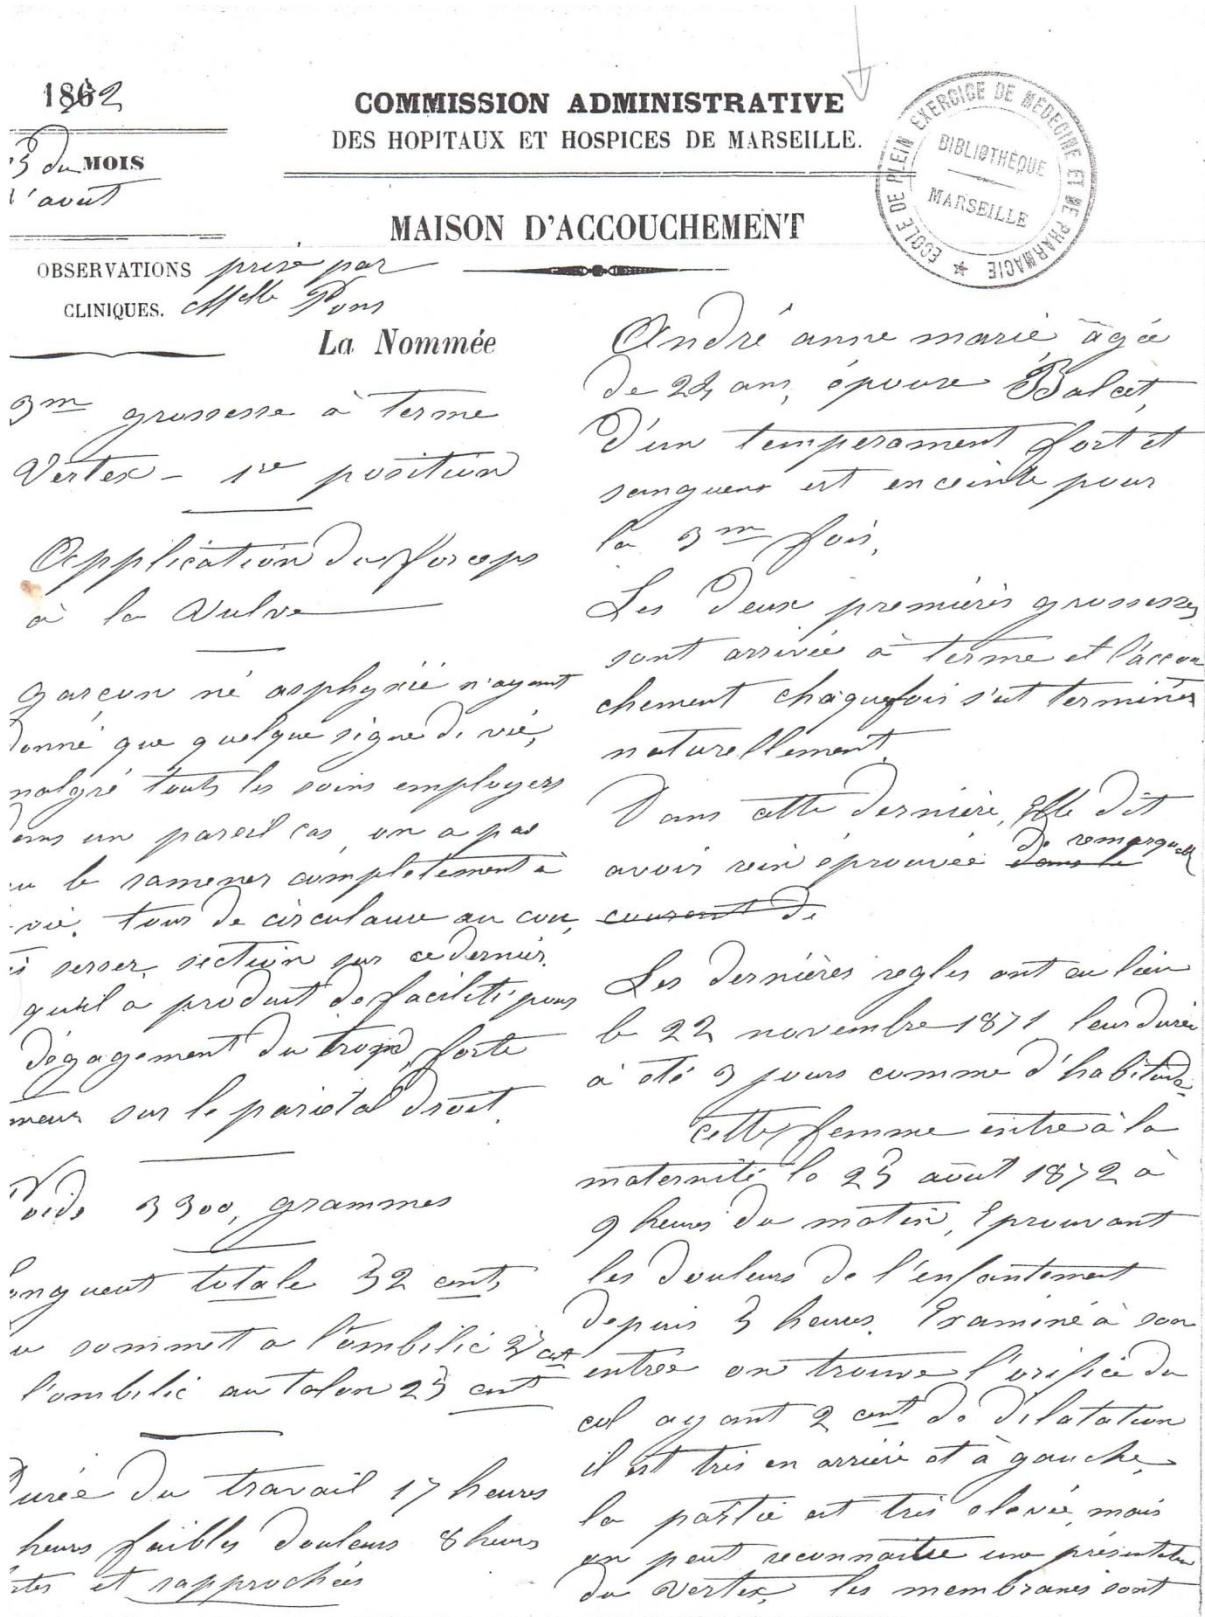 1862
COMMISSION ADMINISTRATIVE
DES HOPITAUX ET HOSPICES DE MARSEILLE.
ECOLE DE PLEIN EXERCICE DE MÉDECINE ET DE PHARMACIE
BIBLIOTHÈQUE
MARSEILLE
du MOIS
d'avut
MAISON D'ACCOUCHEMENT
OBSERVATIONS prise par
CLINIQUES. Melle Pons
La Nommée
3me grossesse à terme
Vertex - 1re position
Application du forceps
à la vulve
garcon né asphyxié n'ayant
donné que quelque signe de vie,
malgré touts les soins employers
dans un pareil cas, on a pas
pu le ramener complètement à
vie. tour de circulaire au cou,
serrer, section sur ce dernier.
qu'il a produit de facilité pour
dégagement du tronc, forte
sur le pariétal droit.
Poids 3300, grammes
longueut totale 52 cent,
du sommet a l'ombilic
l'ombilic au talon 23 cent
Durée du travail 17 heures
heurs faibles douleurs 8 heurs
et rapprochées
André anne marie, agée
de ans, épouse Balcet,
d'un temperament fort et
sanguens est enceinte pour
la 3me fois.
Les deux premières grossesses
sont arrivée à terme et l'accou
chement chaque fois s'est terminér
naturellement.
Dans cette dernière, Elle dit
avoir rein éprouvée dans le de remarquable
courent de
Les dernières regles ont eu lieu
le 22 novembre 1871 leur durée
à été 3 jours comme d'habitude.
cette femme entre à la
maternité le 23 août 1872 à
9 heures du matin, Eprouvant
les douleurs de l'enfantement
depuis 3 heures. Examiné à son
entrée on trouve l'orifice du
col ayant 2 cent de dilatation
il est très en arrière et à gauche,
la partie est très elevée, mais
on peut reconnaitre une présentation
du vertex, les membranes sont